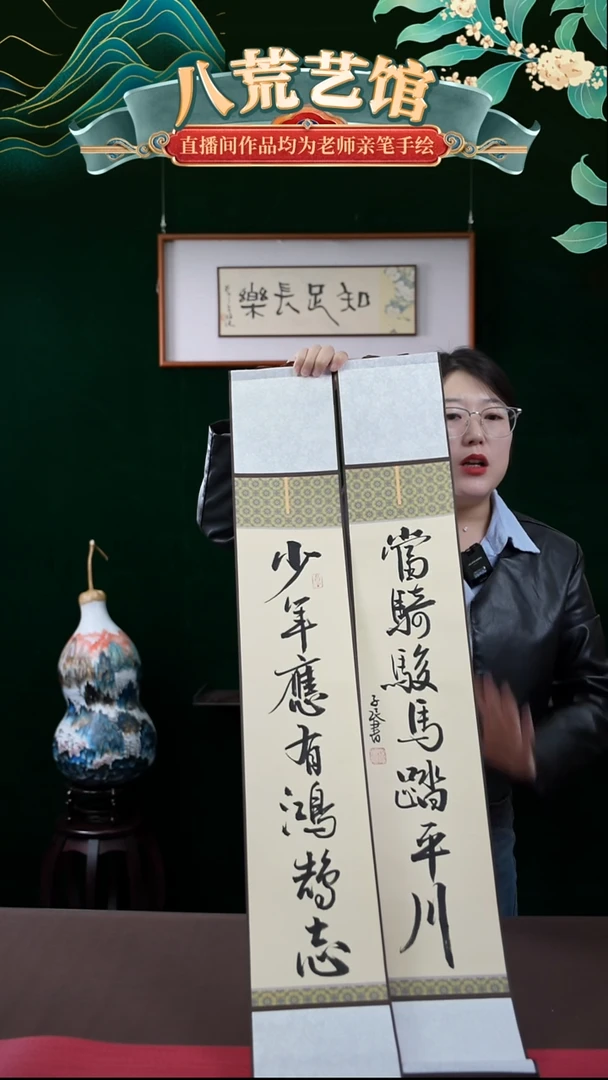 八荒艺馆
直播间作品均为老师亲笔手绘
樂長足知
少年應有鴻鵠志
當騎駿馬踏平川